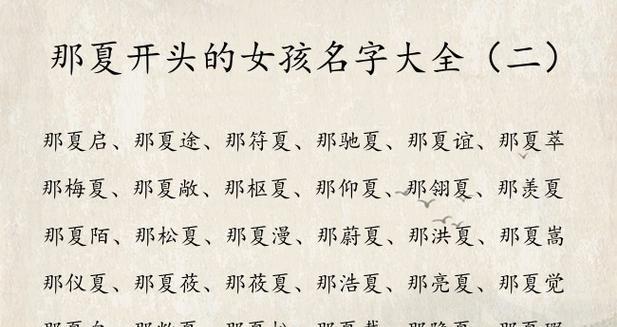 那夏开头的女孩名字大全（二）
那夏启、那夏途、那符夏、那驰夏、那夏谊、那夏萃
那梅夏、那夏敞、那枢夏、那仰夏、那翎夏、那羡夏
那夏陌、那松夏、那夏漫、那蔚夏、那洪夏、那夏嵩
那仪夏、那夏莜、那莜夏、那浩夏、那亮夏、那夏觉